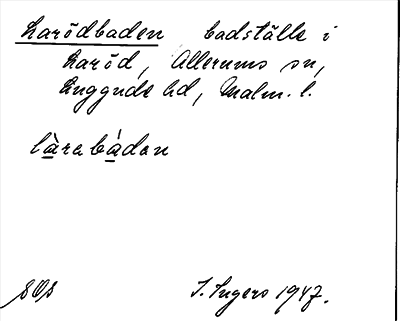 Larödbaden badställe i
Laröd, Allerums sn,
Luggude hd, Malm. l.
làrabádan
SOS I. Ingers 1947.